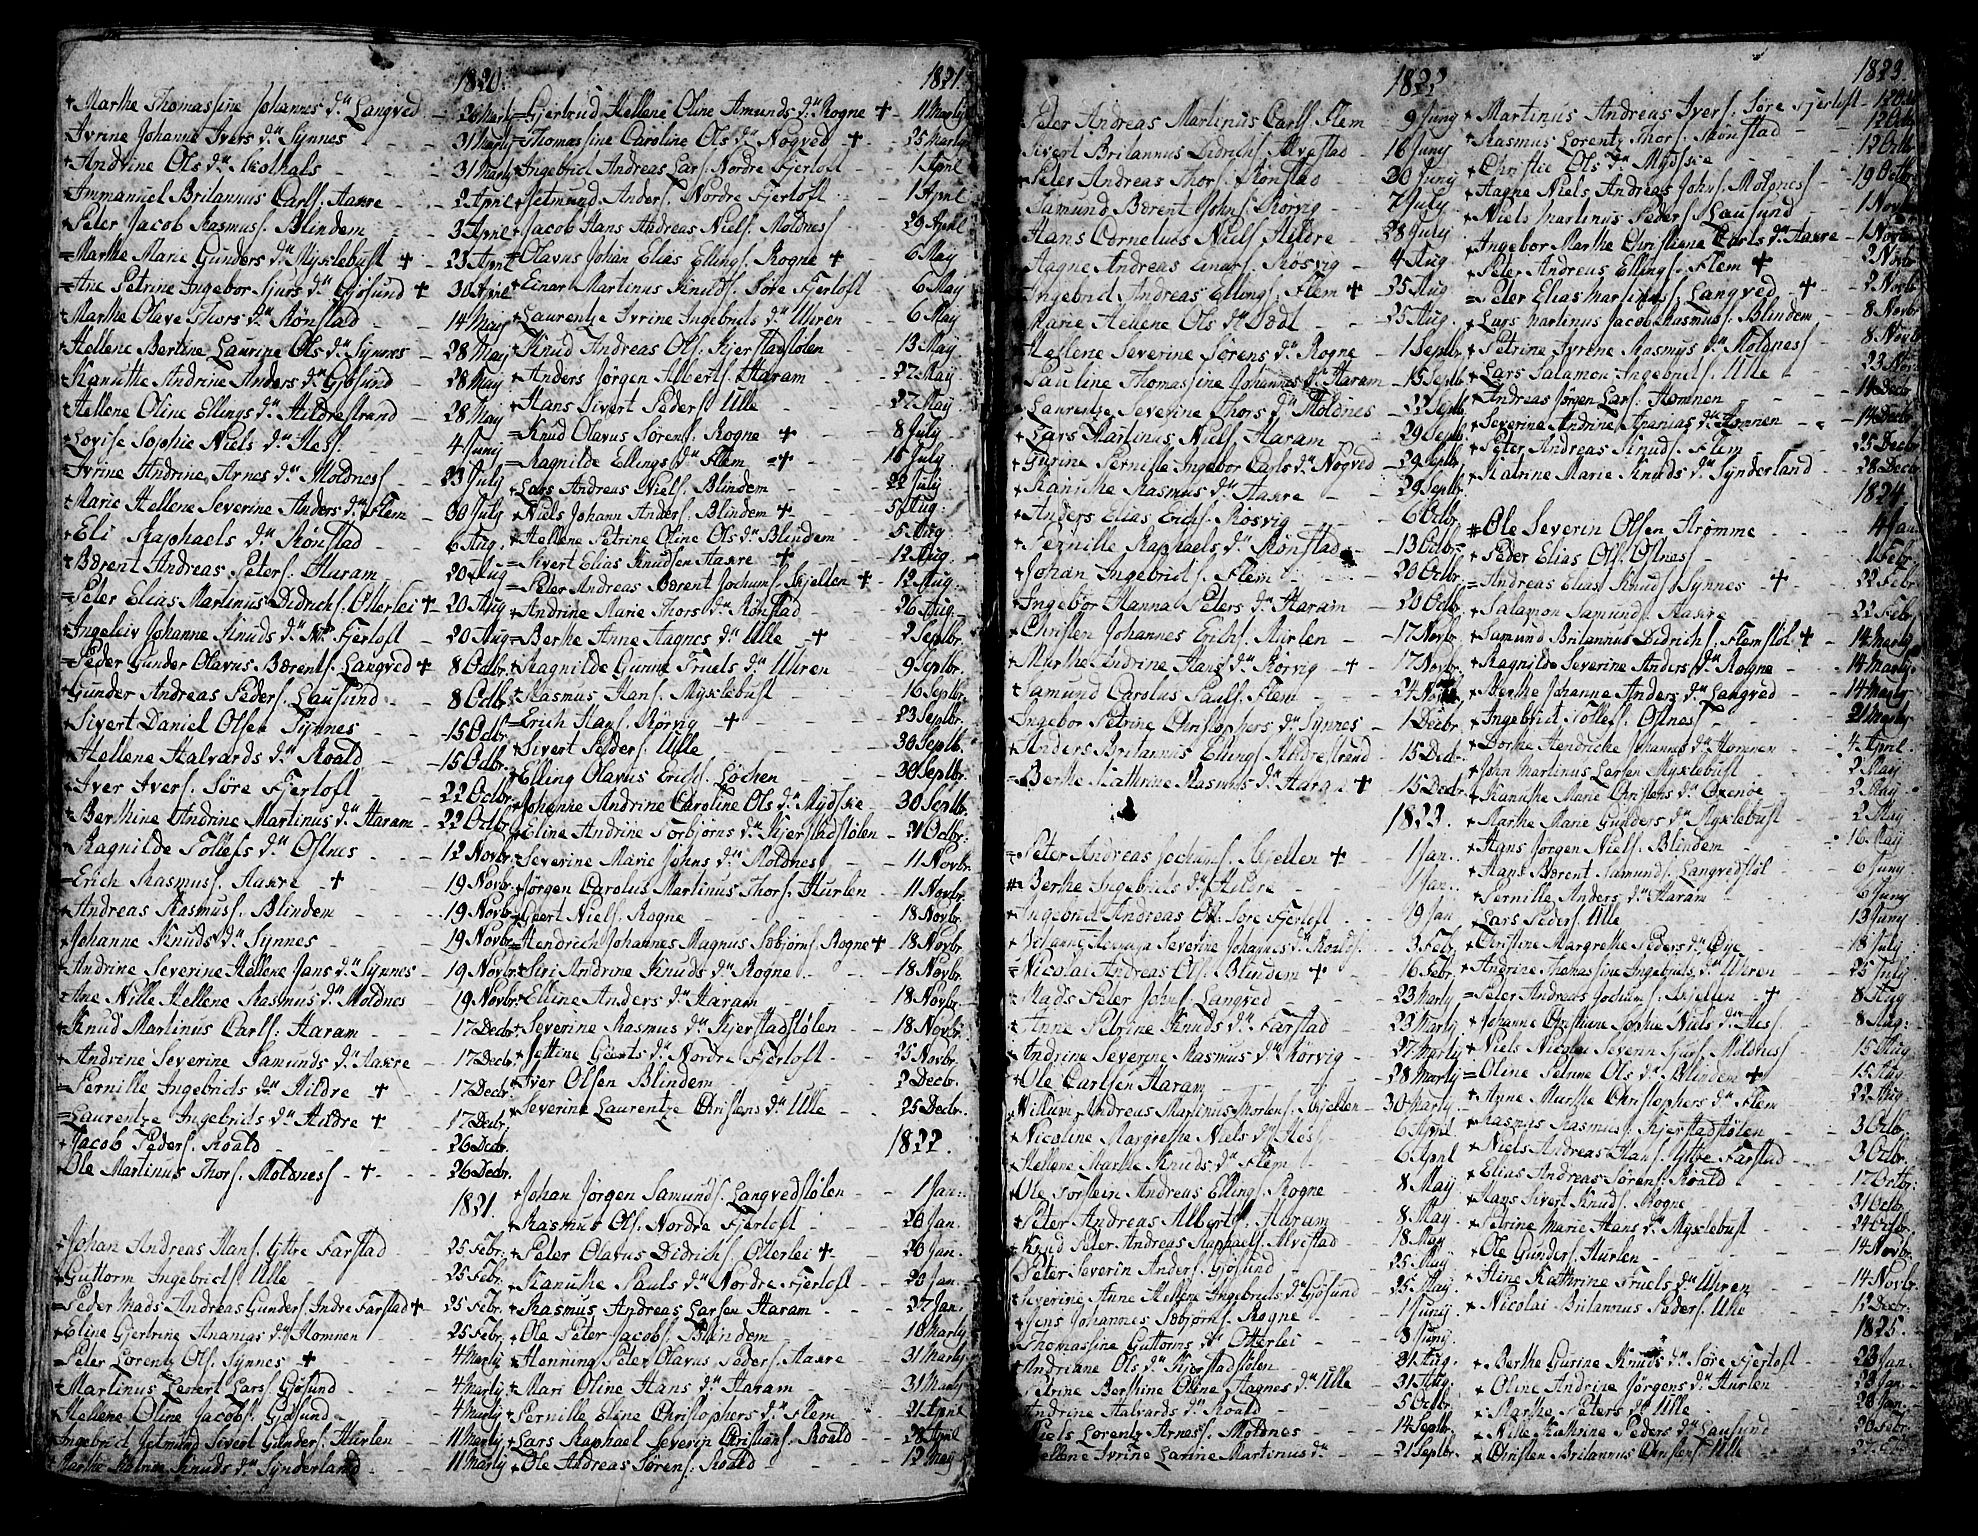 1820.
+ Marthe Thomassine Johannes d:r Langved - 26 Marty
Ivrine Johanne Ivers d:r Synnes - - 31 Marty
+ Andrine Ols d:r Skolhals - - - 31 Marty
Immanuel Britannus Carls: Haxre - - 2 April
+ Peter Jacob Rasmuss: Blindem - - 3 April
= Marthe Marie Gunders d:r Myxlebust + - 23 April
= Ane Petrine Ingebor Sjurs d:r Gjøsund + 30 April
+ Marthe Olave Thors d:r Rønstad - - 14 May
+ Hellene Bertine Laurine Ols d:r Synnes - 28 May
+ Kanutthe Andrine Anders d:r Gjøsund - 28 May
+ Hellene Oline Ellings d:r Hildrestrand - 28 May
+ Lovise Sophie Niels d:r Hess: - - 4 Juny
+ Ivrine Andrine Arnes d:r Moldness - - 23 July
+ Marie Hellene Severine Anders d:r Flem - 30 July
+ Eli Raphaels d:r Rønstad - - 6 Aug.
+ Bærent Andreas Peters: Haram - - 20 Aug
= Peter Elias Martinus Didrichs: Otterlei + - 20 Aug
+ Ingeleiv Johanne Knuds d:r N: Fjertoft - 20 Aug
= Peder Gunder Olavus Bærents: Langved + 8 Octbr.
+ Gunder Andreas Peders: Lausund - - 8 Octb.
+ Sivert Daniel Olsen Synnes - - 15 Octbr
+ Hellene Halvards d:r Roald - - 15 Octbr.
+ Iver Ivers: Søre Fjertoft - - 22 Octbr.
+ Berthine Andrine Martinus d:r Haram - 22 Octbr.
+ Ragnilde Tollefs d:r Ostnes - - 12 Novbr.
= Erich Rasmuss: Haxre - + - 19 Novbr.
+ Andreas Rasmuss: Blindem - - 19 Novbr.
+ Johanne Knuds d:r Synnes - - 19 Novbr.
+ Andrine Severine Hellene Jans d:r Synnes - 19 Novbr.
+ Ane Nille Hellene Rasmus d:r Moldnes - 19 Novbr.
+ Knud Martinus Carls: Haram - - 17 Decbr.
+ Andrine Severine Samunds d:r Haxre - - 17 Decbr.
= Pernille Ingebrids d:r Hildre + - 17 Decbr.
= Laurentze Ingebrids d:r Hildre + - 17 Decbr.
+ Jacob Peders: Roald - - 26 Decbr.
+ Ole Martinus Thors: Moldness - + - 26 Decbr.
1821.
+ Johan Andreas Hans: Yttre Farstad - 25 Febr.
+ Guttorm Ingebrids: Ulle - - 25 Febr.
= Peder Mads Andreas Gunders: Indre Farstad + 25 Febr.
+ Eline Gjertrine Ananias d:r Homnen - 25 Febr.
= Peter Lorentz Ols: Synnes + - - 4 Marty
+ Martinus Lenert Lars: Gjøsund - - 4 Marty
+ Hellene Oline Jacobs: Gjøsund - - 4 Marty
Ingebrid Jetmund Sivert Gunders: Hurlen - 11 Marty
+ Marthe Knuds d:r Synderland - - 11 Marty
1821.
= Gjertrud Hellene Oline Amunds d:r Rogne + 11 Marty
= Thomassine Caroline Ols d:r Nogved + - 25 Marty
+ Ingebrid Andreas Lars: Nordre Fjertoft - - 1 April
+ Jetmund Anders: Nordre Fjertoft - - 1 April
+ Jacob Hans Andreas Niels: Moldnes - - 29 April
+ Olavus Johan Elias Ellings: Rogne + - 6 May
+ Einar Martinus Knuds: Søre Fjertoft 6 May
+ Laurentze Ivrine Ingebrids d:r Uhren - - 6 May
+ Knud Andreas Ols: Kjerstadstølen - - 13 May
+ Anders Jørgen Alberts: Haram - - 27 May.
+ Hans Sivert Peders: Ulle - - 27 May.
= Knud Olavus Sørens: Rogne + - - 8 July
= Ragnilde Ellings d:r Flem - + - 15 July.
+ Lars Andreas Niels: Blindem - - 22 July
+ Niels Johann Anders: Blindem + - 5 Aug:
+ Hellene Petrine Oline Ols d:r Blindem - 5 Aug
= Sivert Elias Knudsen Haxre - + - 12 Aug:
= Peter Andreas Bærent Jochums: Skjellen + 12 Aug:
+ Andrine Marie Thors d:r Rønstad - - 26 Aug.
= Berthe Anne Aagnes d:r Ulle - + - 2 Septbr.
+ Ragnilde Gunne Truels d:r Uhren - 9 Septbr.
+ Rasmus Hans: Myxlebust - - 16 Septbr.
= Erich Hans: Rørvig - + - - 23 Septbr.
+ Sivert Peders: Ulle - - 30 Septbr.
+ Elling Olavus Erichs: Løchen - - 30 Septbr.
+ Johanne Andrine Caroline Ols d:r Mydsxe - 30 Septbr.
+ Eline Andrine Torbjørns d:r Kjerstadstølen - 21 Octbr.
+ Severine Marie Johns d:r Moldnes - - 11 Novbr.
+ Jørgen Carolus Martinus Thors: Hurlen - 11 Novbr.
+ Geert Niels: Rogne - - 18 Novbr.
= Hendrich Johannes Magnus Sæbjørns: Rogne + - 18 Novbr.
+ Siri Andrine Knuds d:r Rogne - - 18 Novbr.
+ Elline Anders d:r Haram - - 18 Novbr.
+ Severine Rasmus d:r Kjerstadstølen - - 18 Novbr.
+ Jettine Geerts d:r Nordre Fjertoft - 25 Novbr.
+ Iver Olsen Blindem - - 2 Decbr.
+ Severine Laurentze Christens d:r Ulle - - 25 Decbr.
1822.
+ Johan Jørgen Samunds: Langvedstølen - - 1 Jan:
+ Rasmus Ols: Nordre Fjertoft - - 20 Jan.
+ Peter Olavus Didrichs: Otterlei + - 20 Jan.
+ Kanuthe Pauls d:r Nordre Fjertoft - - 20 Jan.
+ Rasmus Andreas Larsen Haram - - 27 Jan.
+ Ole Peter Jacobs: Blindem - - 10 Marty
+ Henning Peter Olavus Peders: Haxre - 31 Marty
+ Mari Oline Hans d:r Haram - - 31 Marty
+ Pernille Eline Christophers d:r Flem - 21 April
+ Lars Raphael Severin Christians: Roald - 28 April
+ Ole Andreas Sørens: Roald - - 12 May
1822
Peter Andreas Martinus Carls: Flem 9 Juny
Sivert Britannus Didrichs: Alvestad - 16 Juny
+ Peter Andreas Thors: Rønstad - 30 Juny
Samund Bærent Johns: Rørvig - - 7 July
Hans Cornelius Niels: Hildre - - 28 July
Aagne Andreas Einars: Røsvig - - 4 Aug
Ingebrid Andreas Ellings: Flem + - 25 Aug
Marie Hellene Ols d:r Dødl - - 25 Aug.
Hellene Severine Sørens d:r Rogne - 1 Septbr.
+ Pauline Thomassine Johannes d:r Haram - 15 Septbr.
Laurentze Severine Thors d:r Moldnes - 22 Septb.
+ Lars Martinus Niels: Haram - - 29 Septb.
+ Gurine Pernille Ingebor Carls d:r Nogved - 29 Septbr.
+ Kanuthe Rasmus d:r Haxre - - 29 Septbr.
+ Anders Elias Erichs: Røsvig - - 6 Octbr.
+ Pernille Raphaels d:r Rønstad - 13 Octbr.
+ Johan Ingebrids: Flem - - 20 Octbr.
+ Ingebor Hanna Peters d:r Haram - 20 Octbr.
+ Christen Johannes Erichs: Hurlen - 17 Novbr.
+ Marthe Andrine Hans d:r Rørvig - + - 17 Novbr.
+ Samund Carolus Pauls: Flem - - 24 Novbr.
Ingebor Petrine Christophers d:r Synnes - 1 Decbr.
+ Anders Britannus Ellings: Hildrestrand - 15 Decbr.
= Berthe Kathrine Rasmus d:r Haram + 15 Decbr.
1823.
= Peter Andreas Jochums: Skjellen + - 1 Jan.
# Berthe Ingebrids d:r Hildre - - 1 Jan.
+ Ingebrid Andreas Ols: Søre Fjertoft - - 19 Jan
+ Johanne Severine Johannes d:r Roald - 3 Febr.
= Nicolai Andreas Ols: Blindem + - - 16 Febr.
+ Mads Peter Johns: Langved - - 23 Marty
+ Anne Petrine Knuds d:r Farstad - - 23 Marty
+ Andrine Severine Rasmus d:r Rørvig - - 27 Marty
+ Ole Carlsen Haram - - - 28 Marty
+ Willum Andreas Martinus Mortens: Skjellen - 30 Marty
+ Nicoline Margrethe Niels d:r Hess - - 6 April
+ Hellene Marthe Knuds d:r Flem - - 6 April
+ Ole Torstein Andreas Ellings: Rogne - - 8 May
+ Peter Andreas Alberts: Haram - - 8 May.
+ Knud Peter Andreas Raphaels: Alvestad - 18 May
Peter Severin Anders: Gjøsund - - 25 May
+ Severine Anne Hellene Ingebrids d:r Gjøsund - 25 May.
+ Jens Johannes Sæbjørns: Rogne - - 1 Juny
Thomasine Guttorms d:r Otterlei - - 8 Juny.
+ Andriane Ols d:r Kjerstadstølen - - 31 Aug.
Petrine Berthine Oline Aagnes d:r Ulle - 31 Aug.
Andrine Halvards d:r Roald - - 5 Octbr.
Niels Lorentz Arnes: Moldnes - - 14 Septbr.
Hellene Ivrine Lavine Martinus d:r - 21 Septbr.
1823.
+ Martinus Andreas Ivers: Søre Fjertoft - 12 Octb
+ Rasmus Lorentz Thors: Rønstad - - 12 Octbr
+ Christie Ols d:r Mydsxe - - 12 Octb
+ Aagne Niels Andreas Johns: Moldness - 19 Octbr
+ Niels Martinus Peders: Lausund - - 1 Novbr
+ Ingebor Marthe Christiane Carls d:r Haxre - 1 Novbr
+ Peter Andreas Ellings: Flem + - 2 Novbr
= Peter Elias Martinus Langved + - 2 Novbr
+ Lars Martinus Jacob Rasmuss: Blindem - 8 Novbr
+ Petrine Ivrine Rasmus d:r Moldness - 8 Novbr
+ Lars Salamon Ingebrids: Ulle - - 23 Nov
+ Andreas Jørgen Lars: Homnen - - 14 Decbr.
+ Severine Andrine Ananias d:r Homnen - 14 Decbr
+ Peter Andreas Knuds: Flem - - 25 Decbr
+ Katrine Marie Knuds d:r Synderland - 28 Decbr
1824.
# Ole Severin Olsen Strømme - - 4 Jan
+ Peder Elias Ols: Ostnes - - 1 Febr.
= Andreas Elias Knuds: Synnes + - 22 Febr
+ Salamon Samunds: Haxre - - 22 Febr.
+ Samund Britannus Didrichs: Flemstøl + 14 Marty
+ Ragnilde Severine Anders d:r Rogne - 14 Marty
+ Berthe Johanne Anders d:r Langved - 14 Marty
+ Ingebrid Tollefs: Ostnes - - 21 Marty
+ Dorthe Hendricke Johannes d:r Homnen - 4 April.
+ John Martinus Larsen Myxlebust - - 2 May
+ Kanuthe Marie Christens d:r Oxenøe - 2 May
+ Marthe Marie Gunders d:r Myxlebust - 2 May
+ Hans Jørgen Niels: Blindem - - 16 May
+ Hans Bærent Samunds: Langvedstøl - 6 Juny
+ Pernille Anders d:r Haram - - 6 Juny
+ Lars Peders: Ulle - - 13 Juny
+ Christine Margrethe Peders d:r Øye - 18 July
+ Andrine Thomassine Ingebrids d:r Uhren - 25 July
= Peter Andreas Jochums: Skjellen - + - 8 Aug
+ Johanne Christiane Sophie Niels d:r Hess - 8 Aug:
+ Niels Nicolai Severin Sjurs: Moldness - 15 Aug
= Oline Petrine Ols d:r Blindem + - 15 Aug
+ Anne Marthe Christophers d:r Flem - 22 Aug
+ Rasmus Rasmuss: Kjerstadstølen - - 3 Octbr.
+ Niels Andreas Hans: Yttre Farstad - - 3 Octbr.
+ Elias Andreas Sørens: Roald - - 17 Octbr.
+ Hans Sivert Knuds: Rogne - - 31 Octbr.
+ Petrine Marie Hans d:r Myxlebust - - 24 Octbr.
+ Ole Gunders: Hurlen - - 14 Novbr.
+ Stine Kathrine Truels d:r Uhren - - 14 Novbr.
+ Nicolai Britannus Peders: Ulle - - 12 Decbr.
1825.
+ Berthe Gurine Knuds d:r Søre Fjertoft - 23 Jan.
+ Oline Andrine Jørgens d:r Hurlen - 23 Jan.
+ Marthe Peters d:r Ulle - - 28 Jan.
+ Nille Kathrine Peders d:r Lausund - 20 Febr.
+ Christen Britannus Christens: Ulle - 27